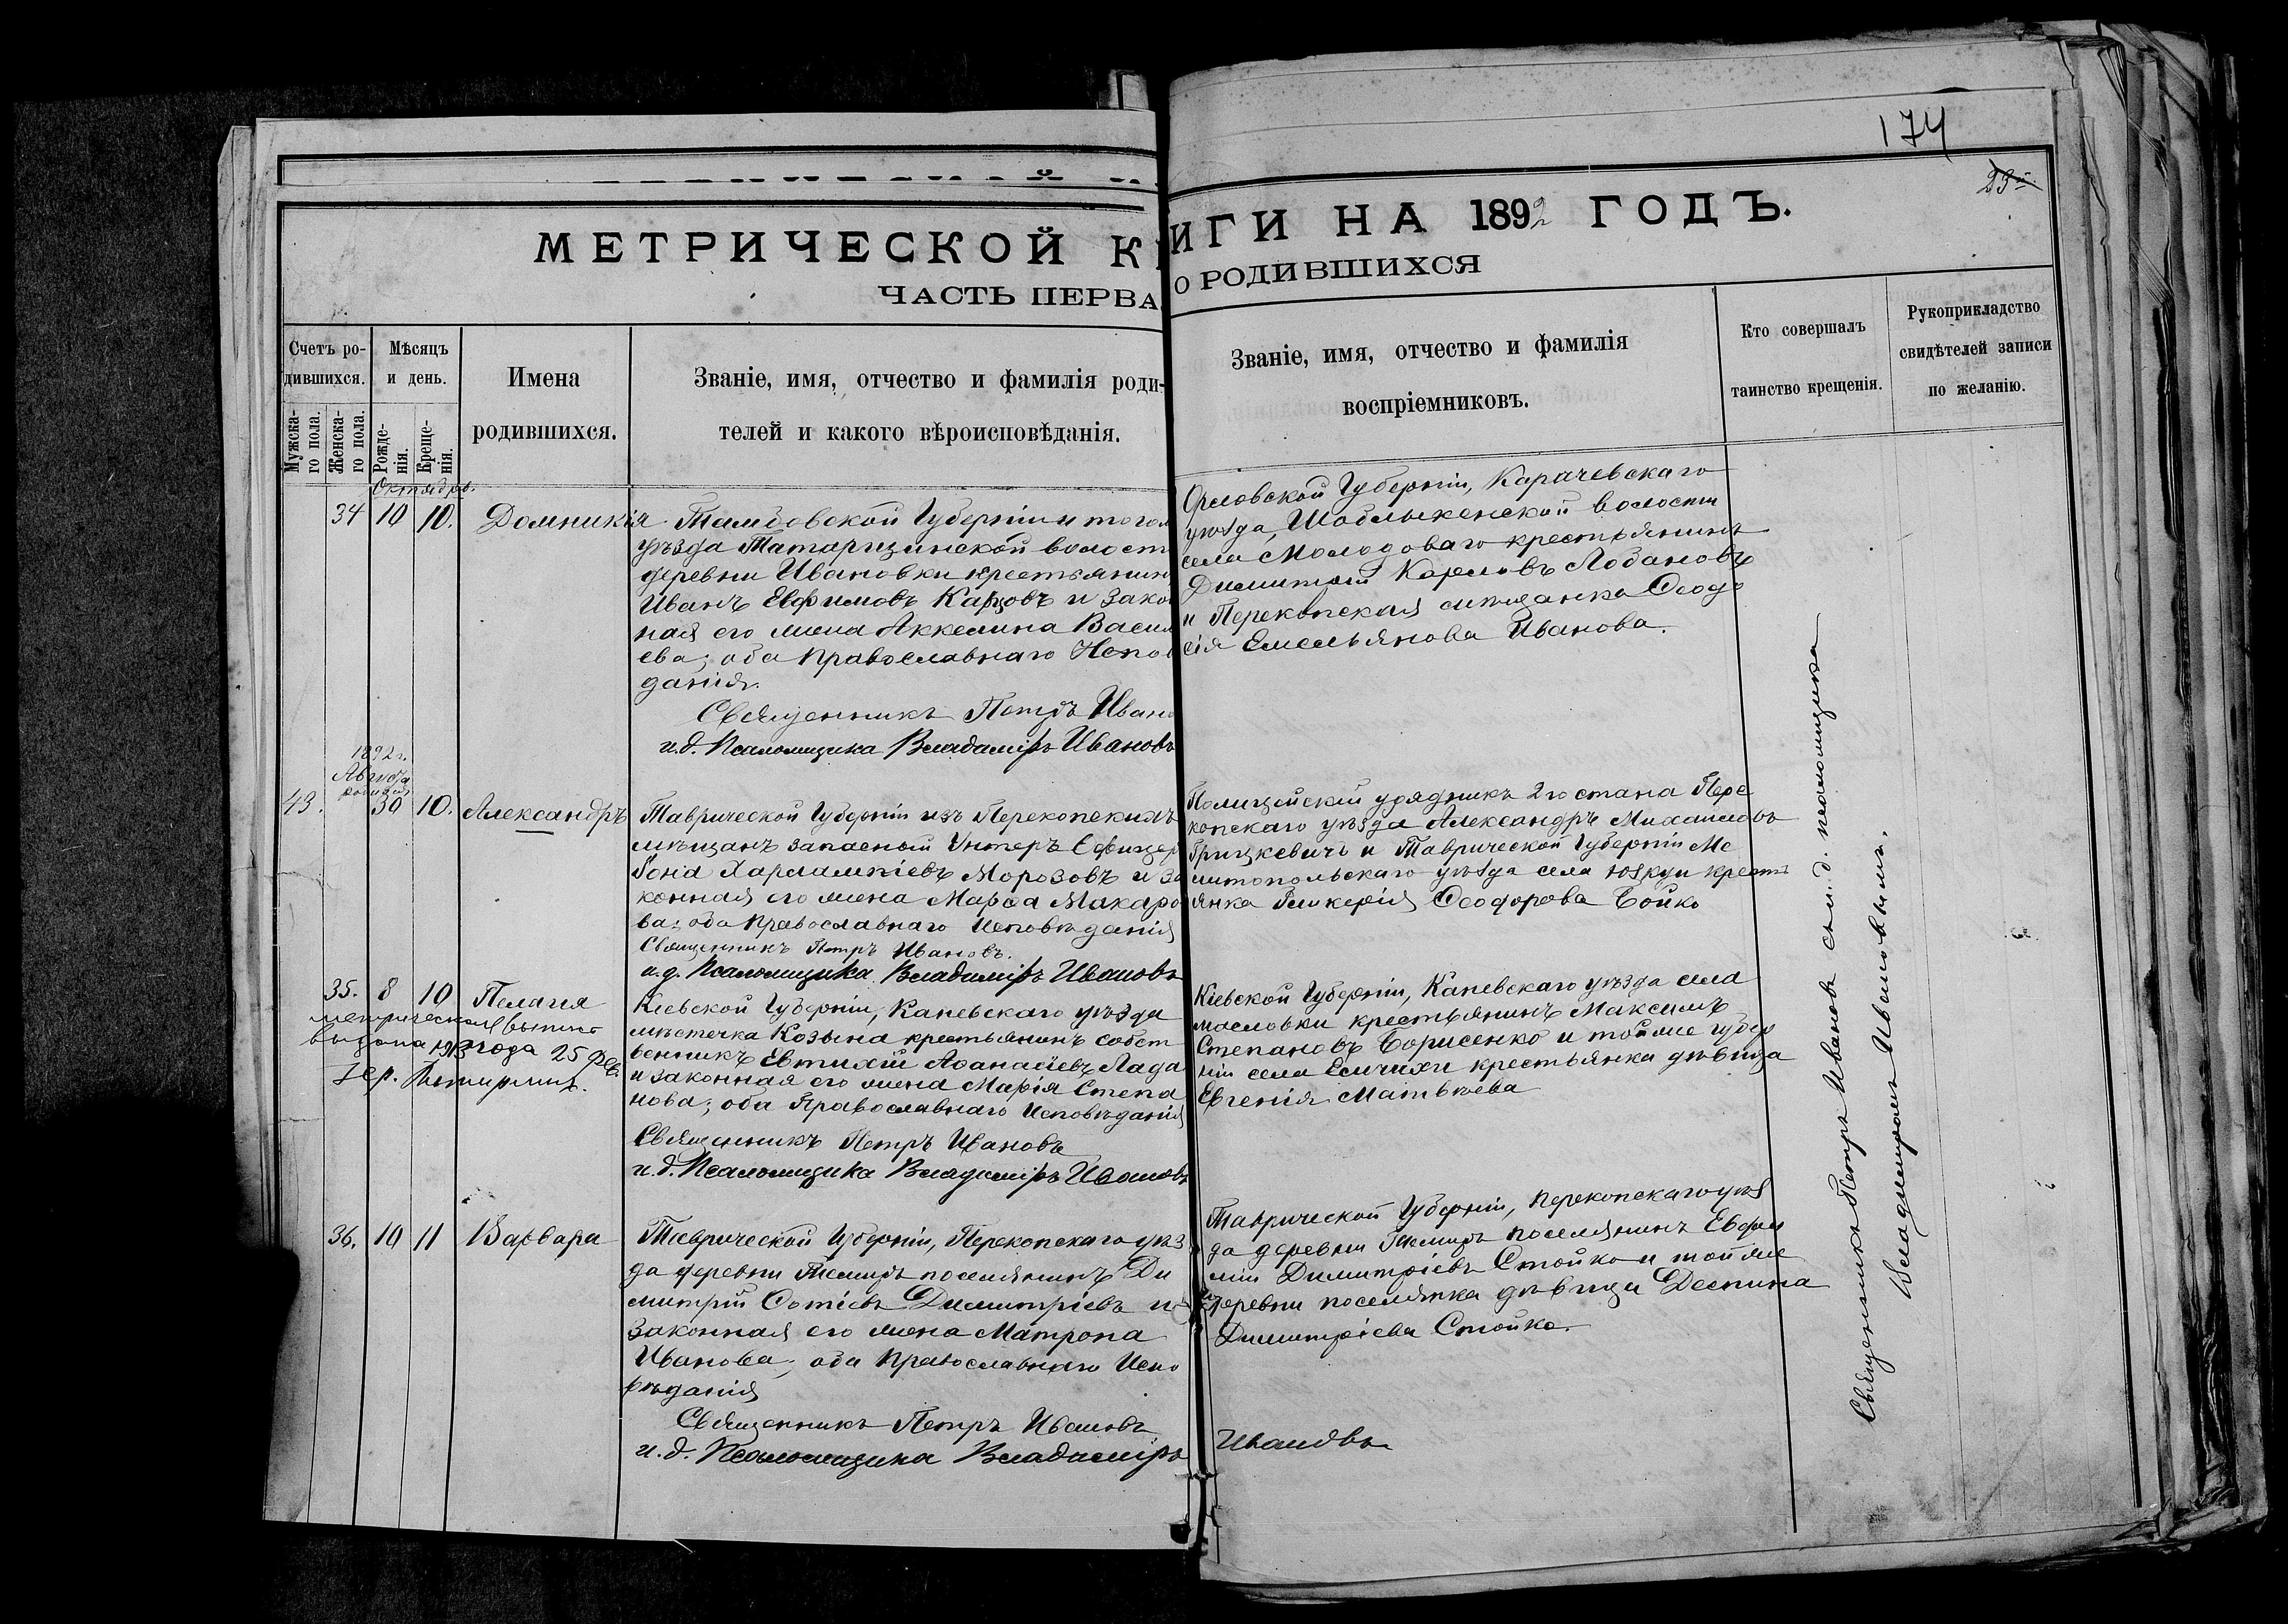 174
МЕТРИЧЕСКОЙ К
ИГИ НА 1892 ГОДЪ.
ЧАСТЬ ПЕРВА
О РОДИВШИХСЯ
Счетъ ро-
дившихся.
Мужска-
го пола.
Женска-
го пола.
Мѣсяцъ
и день.
Рожде-
нія.
Креще-
нія.
Имена
родившихся.
Званіе, имя, отчество и фамилія роди-
телей и какого вѣроисповѣданія.
Званіе, имя, отчество и фамилія
воспріемниковъ.
Кто совершалъ
таинство крещенія.
Рукоприкладство
свидѣтелей записи
по желанію.
Октября.
34 10 10. Домникія
Тамбовской Губерніи и того
уѣзда Татарщинской волост
деревни Ивановки крестьянин
Иванъ Евфимовъ Карцовъ и зако
ная его жена Аккелина Васил
ева; оба Православнаго Испов
данія.
Священникъ Петръ Ивано
и.д. Псаломщика Владиміръ Ивановъ
Орловской Губерніи, Карачевскаго
уѣзда, Шаблыкенской волости
села Молодоваго крестьянинъ
Димитрій Карповъ Лобановъ
и Перекопская мѣщанка Ѳеодо
сія Емельянова Иванова.
1892 г.
Августа
43. 30 10. Александръ
Таврической Губерніи изъ Перекопскихъ
мѣщанъ запасный Унтеръ Офицер
Іона Харлампіевъ Морозовъ и за
конная его жена Марѳа Макаро
ва; оба Православнаго Исповѣданія
Священникъ Петръ Ивановъ.
и.д. Псаломщика Владиміръ Ивановъ
Полицейскій урядникъ 2го стана Пере
копскаго уѣзда Александръ Михаиловъ
Грицкевичъ и Таврической Губерніи Ме
литопольскаго уѣзда села Юзкуи крестъ
янка Гликерія Ѳеодорова Бойко
35. 8 10 Пелагія
метрическая выпис
выдана 1913 года 25 фев.
Кіевской Губерніи, Каневскаго уѣзда
мѣстечка Козына крестьянинъ собст
венникъ Евтихій Аѳанасіевъ Лада
и законная его жена Марія Степа
нова; оба Православнаго Исповѣданія
Священникъ Петръ Ивановъ
и.д. Псаломщика Владиміръ Ивановъ
Кіевской Губерніи, Каневскаго уѣзда села
Масловки крестьянинъ Максимъ
Степановъ Борисенко и той же губер
ніи села Есичихи крестьянка дѣвица
Евгенія Матвѣева
36. 10 11 Варвара
Таврической Губерніи, Перекопскаго уѣз
да деревни Темиръ поселянинъ Ди
митрій Сотіевъ Димитріевъ и
законная его жена Матрона
Иванова; оба Православнаго Испо
вѣданія
Священникъ Петръ Ивановъ
и.д. Псаломщика Владиміръ
Ивановъ
Таврической Губерніи, Перекопскаго уѣз
да деревни Темиръ поселянинъ Евфи
мій Димитріевъ Стойко и той же
деревни поселянка дѣвица Деспина
Димитріева Стойко.
Священникъ Петръ Ивановъ съ и.д. псаломщика
Владиміромъ Ивановымъ.